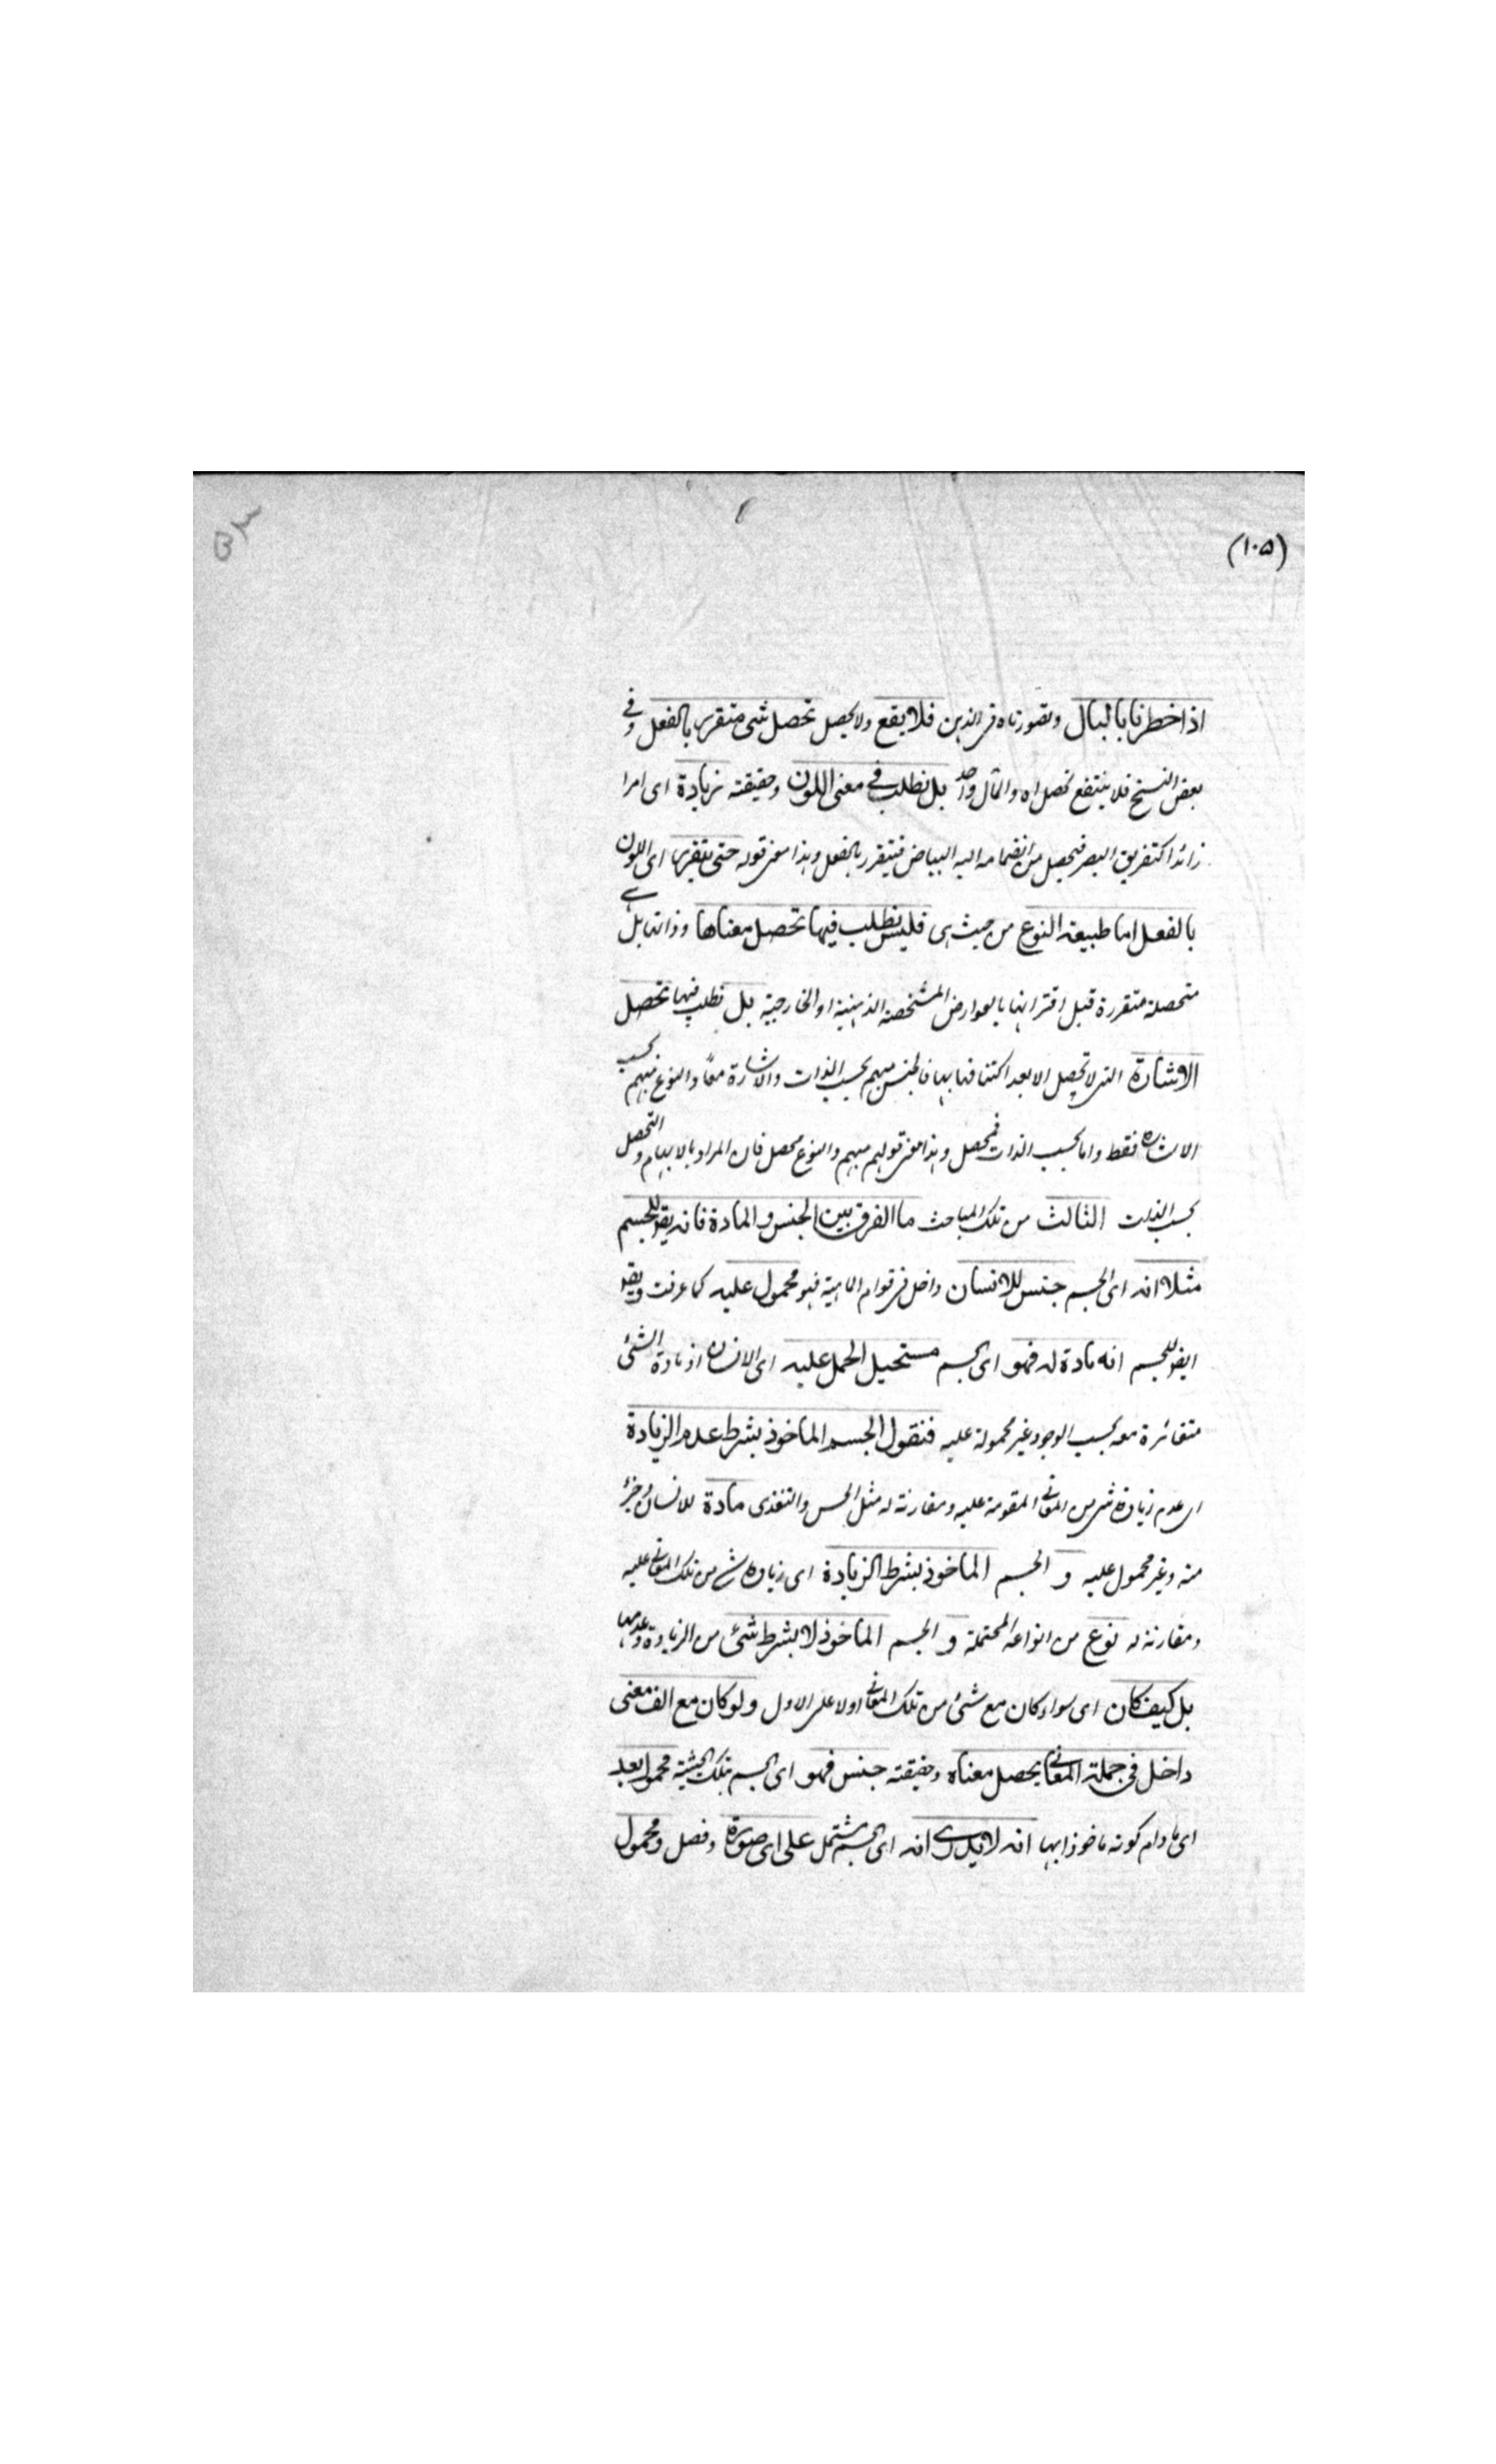 (١٠٥)
اذا خطرنا بالبال وتصورناه فى الذهن فلا يقع ولا يحصل تحصل شئ متقرر بالفعل وفى
بعض النسخ فلا ينتفع تحصل اه والمآل واحد بل نطلب فى معنى اللون وحقيقته زيادة اى امرا
زائدا كتفريق البصر فيحصل من انضمامه اليه البياض فيتقرر بالفعل وهذا معنى قوله حتى يتقرر اى اللون
بالفعل اما طبيعة النوع من حيث هى فليس نطلب فيها تحصل معناها وذاتها بل هى
متحصلة متقررة قبل اقترانها بالعوارض المشخصة الذهنية او الخارجية بل نطلب فيها تحصل
الاشارة التى لا تحصل الا بعد اكتنافها بها فالجنس مبهم بحسب الذات والاشارة معًا والنوع مبهم بحسب
الاشارة فقط واما بحسب الذات فمحصل وهذا معنى قولهم مبهم والنوع محصل فان المراد بالابهام والتحصل
بحسب الذات الثالث من تلك المباحث ما الفرق بين الجنس والمادة فانه يقو للجسم
مثلا انه اى الجسم جنس للانسان داخل فى قوام الماهية فهو محمول عليه كما عرفت ويقو
ايضو للجسم انه مادة له فهو اى الجسم مستحيل الحمل عليه اى الانسان اذ مادة الشئ
متغائرة معه بحسب الوجود غير محمولة عليه فنقول الجسم الماخوذ بشرط عدم الزيادة
اى عدم زيادة شئ من المعانى المقومة عليه ومقارنة له مثل الحس والتغذى مادة للانسان وجزء
منه وغير محمول عليه و الجسم الماخوذ بشرط الزيادة اى زيادة شئ من تلك المعانى عليه
ومقارنته له نوع من انواعه المحتملة و الجسم الماخوذ لا بشرط شئ من الزيادة وعدمها
بل كيف كان اى سواء كان مع شئ من تلك المعانى اولا على الاول ولو كان مع الف معنى
داخل فى جملة المعانى يحصل معناه وحقيقته جنس فهو اى الجسم بتلك الحيثية مجهول بعد
اى ما دام كونه ماخوذا بها انه لا يدرى انه اى الجسم مشتمل على اى صورة وفصل ومحمول